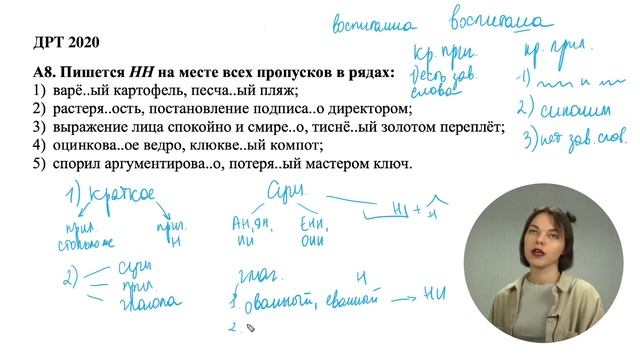 воспитанна воспитана
ДРТ 2020
кр. прич. кр. прил.
А8. Пишется НН на месте всех пропусков в рядах:
1) есть зав. слова
1) и
1) варё..ый картофель, песча..ый пляж;
2) растеря..ость, постановление подписа..о директором;
2) синоним
3) выражение лица спокойно и смире..о, тиснё..ый золотом переплёт;
3) нет зав. слов.
4) оцинкова..ое ведро, клюкве..ый компот;
5) спорил аргументирова..о, потеря..ый мастером ключ.
1) краткое Сущ.
прил. прич. Н
Ан, ян, ин Енн, Онн Н + н
2) сущ. прил. глагола
глаг. Н
1. Ованный, еванный → НН
2.